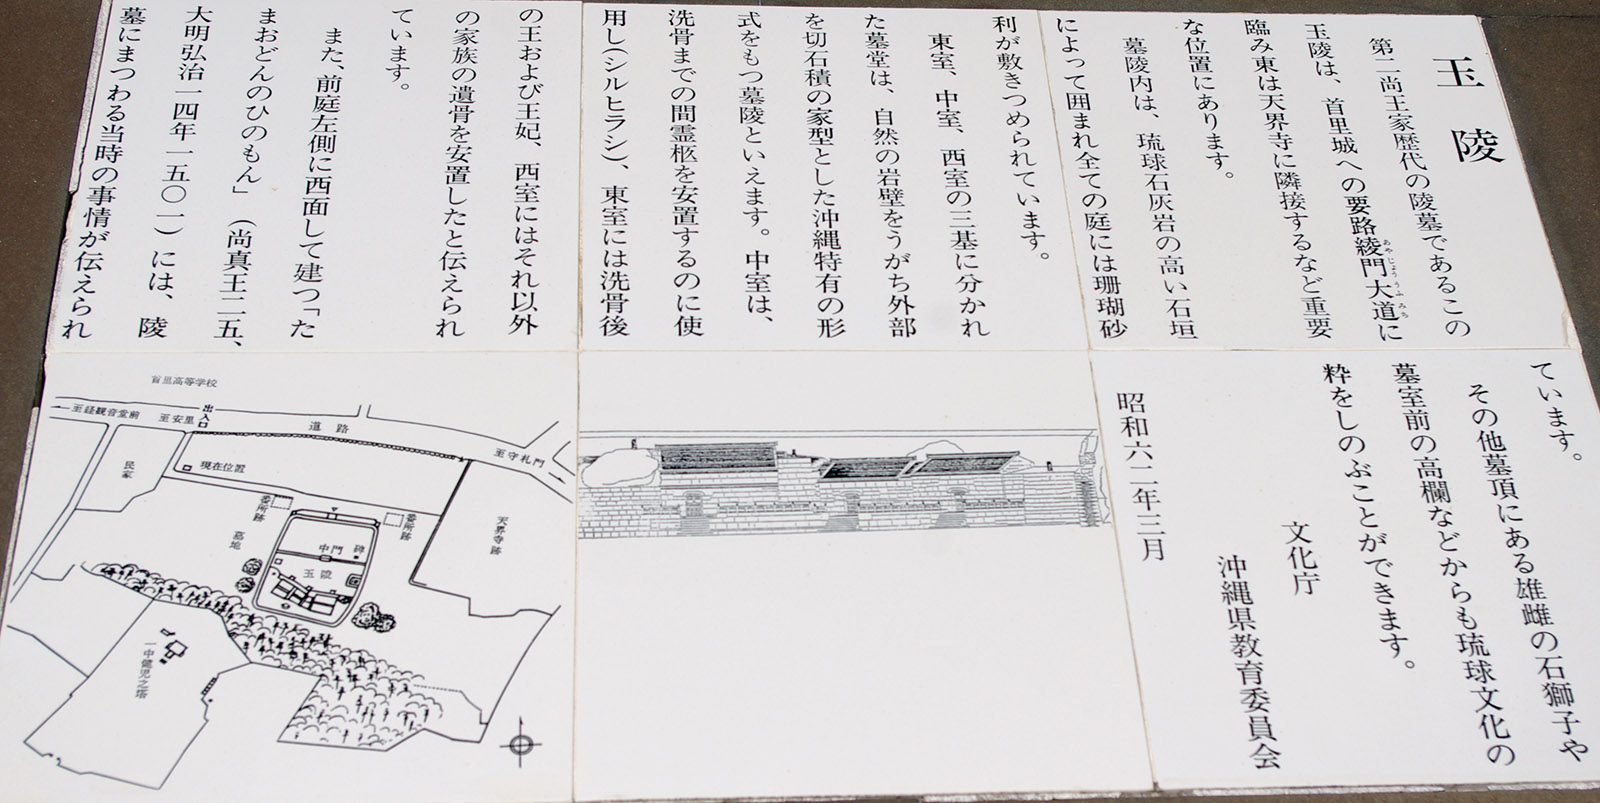 玉陵
第二尚王家歴代の陵墓であるこの
玉陵は、首里城への要路綾門大道に
あやじょううふみち
臨み東は天界寺に隣接するなど重要
な位置にあります。
墓陵内は、琉球石灰岩の高い石垣
によって囲まれ全ての庭には珊瑚砂
利が敷きつめられています。
東室、中室、西室の三基に分かれ
た墓堂は、自然の岩壁をうがち外部
を切石積の家型とした沖縄特有の形
式をもつ墓陵といえます。中室は、
洗骨までの間霊柩を安置するのに使
用し(シルヒラシ)、東室には洗骨後
の王および王妃、西室にはそれ以外
の家族の遺骨を安置したと伝えられ
ています。
また、前庭左側に西面して建つ「た
まおどんのひのもん」(尚真王二五、
大明弘治一四年一五〇一)には、陵
墓にまつわる当時の事情が伝えられ
ています。
その他墓頂にある雄雌の石獅子や
墓室前の高欄などからも琉球文化の
粋をしのぶことができます。
文化庁
沖縄県教育委員会
昭和六二年三月
首里高等学校
至経観音堂前
至安里
出入口
道路
至守礼門
民家
現在位置
番所跡
番所跡
天界寺跡
墓地
中門
碑
玉陵
一中健児之塔